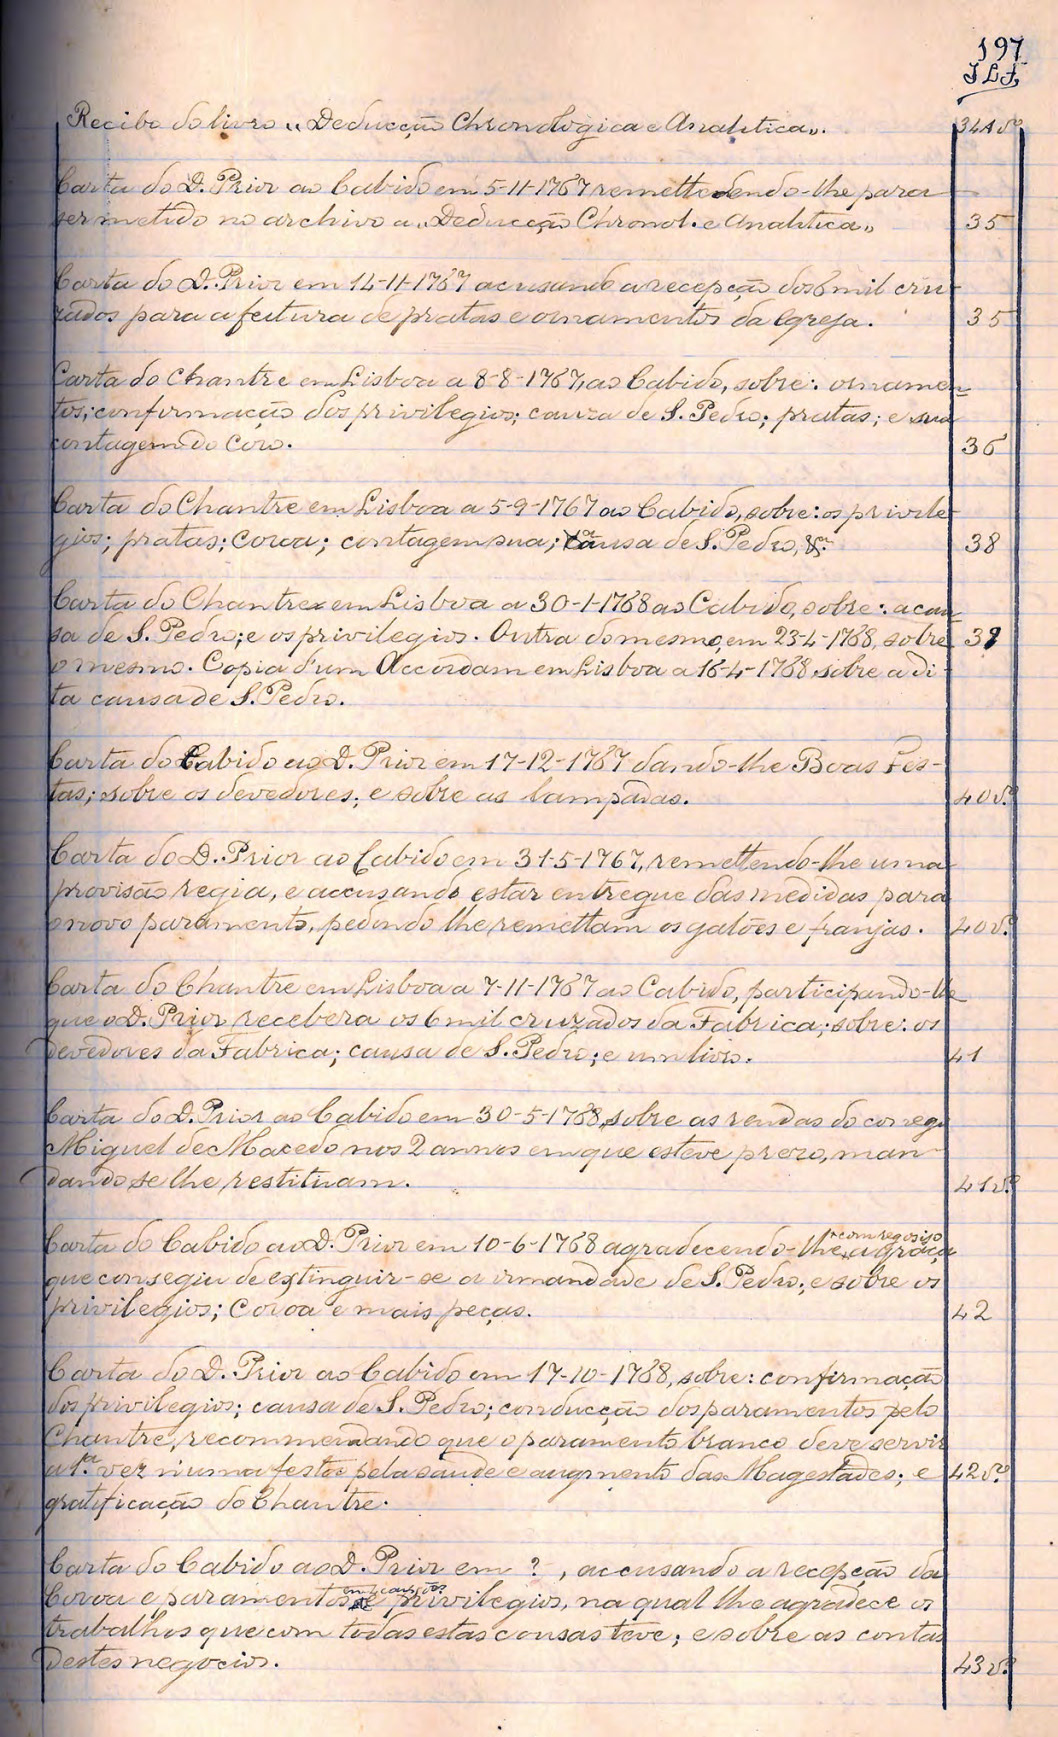 197
J L F
Recibo do livro „Deducção Chronologica e Analitica„. 34A v.º
Carta do D. Prior ao Cabido em 5-11-1767 remettedendo-lhe para
ser metido no archivo a „Deducção Chronol. e Analitica„ 35
Carta do D. Prior em 14-11-1767 acusando a recepção dos 6 mil cru-
zados para a feitura de pratas e ornamentos da Egreja. 35
Carta do Chantre em Lisboa a 8-8-1767, ao Cabido, sobre: ornamen-
tos; confirmação dos privilegios; cauza de S. Pedro; pratas; e sua
contagem do Coro. 36
Carta do Chantre em Lisboa a 5-9-1767 ao Cabido, sobre: os privile-
gios; pratas; Coroa; contagem sua; causa de S. Pedro, &.ª 38
Carta do Chantre em Lisboa a 30-1-1768 ao Cabido, sobre: a cau-
sa de S. Pedro; e os privilegios. Outra do mesmo, em 23-4-1768, sobre 39
o mesmo. Copia d'um Accordam em Lisboa a 16-4-1768 sobre a di-
ta causa de S. Pedro.
Carta do Cabido ao D. Prior em 17-12-1767 dando-lhe Boas Fes-
tas; sobre os devedores; e sobre as lampadas. 40 v.º
Carta do D. Prior ao Cabido em 31-5-1767, remettendo-lhe uma
provisão regia, e accusando estar entregue das medidas para
o novo paramento, pedindo lhe remettam os galões e franjas. 40 v.º
Carta do Chantre em Lisboa a 7-11-1767 ao Cabido, participando-lhe
que o D. Prior recebera os 6 mil cruzados da Fabrica; sobre: os
devedores da Fabrica; causa de S. Pedro; e um livro. 41
Carta do D. Prior ao Cabido em 30-5-1768, sobre as rendas do conego
Miguel de Macedo nos 2 annos em que esteve prezo, man-
dando se lhe restituam. 41 v.º
Carta do Cabido ao D. Prior em 10-6-1768 agradecendo-lhe, com regosijo, a graça
que consegiu de extinguir-se a irmandade de S. Pedro; e sobre os
privilegios; Coroa e mais peças. 42
Carta do D. Prior ao Cabido em 17-10-1768, sobre: confirmação
dos privilegios; causa de S. Pedro; conducção dos paramentos pelo
Chantre, recommendando que o paramento branco deve servir
a 1.ª vez n'uma festa pela saude e augmento das Magestades; e 42 v.º
gratificação do Chantre.
Carta do Cabido ao D. Prior em ? , accusando a recepção da
Coroa e paramentos e privilegios, na qual lhe agradece os
trabalhos que com todas estas cousas teve; e sobre as contas
destes negocios. 43 v.º